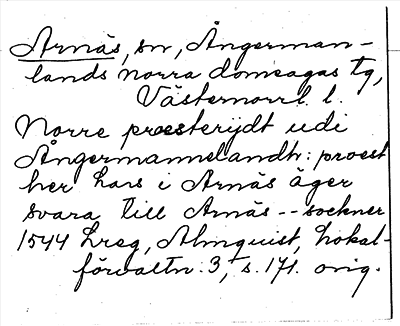 Arnäs, sn, Ångerman-
lands norra domsagas tg,
Västernorrl. l.
Norre proesterijdt udi
Ångermannelandh: proest
her Lars i Arnäs äger
svara till Arnäs -- sockner
1544 Lreg, Almquist, Lokal-
förvaltn. 3, s. 171. orig.